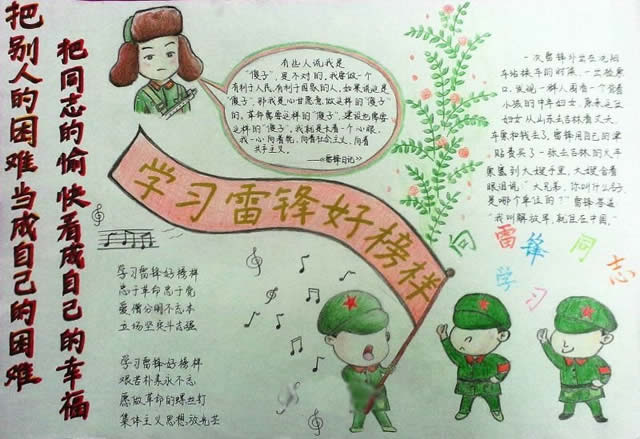 把别人的困难当成自己的困难
把同志的愉快看成自己的幸福
有些人说我是
“傻子”，是不对的。我要做一个
有利于人民，有利于国家的人。如果说这是
“傻子”，那我是心甘愿意做这样的“傻子”
的，革命需要这样的“傻子”，建设也需要
这样的“傻子”。我就是长着一个心眼，
我一心向着党，向着社会主义，向着
共产主义。
——《雷锋日记》
学习雷锋好榜样
一次雷锋外出在沈阳
车站换车的时候，一出检票
口，发现一群人围看一个背着
小孩的中年妇女，原来这位
妇女从山东去吉林看丈夫，
车票和钱丢了。雷锋用自己的津
贴费买了一张去吉林的火车
票塞到大嫂手里，大嫂含着
眼泪说：“大兄弟，你叫什么名字，
是哪个单位的？”雷锋答道：
“我叫解放军，就住在中国。”
向雷锋同志
学习
学习雷锋好榜样
忠于革命忠于党
爱憎分明不忘本
立场坚定斗志强
学习雷锋好榜样
艰苦朴素永不忘
愿做革命的螺丝钉
集体主义思想放光芒